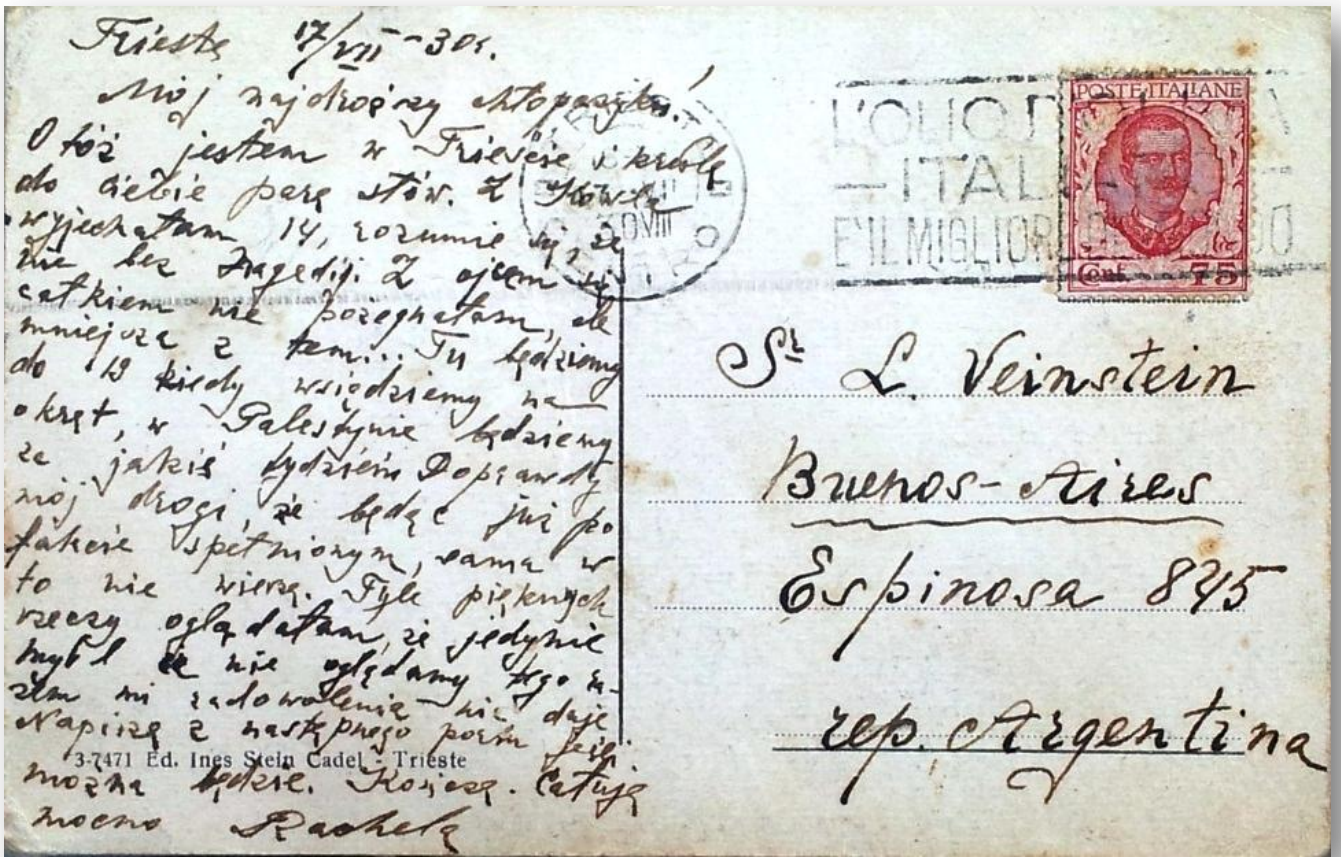 Trieste 17/VII-30r.
Mój najdroższy chłopczyku!
Otóż jestem w Trieście i kreślę
do ciebie parę słów. Z Kowla
wyjechałam 14, rozumie się, że
nie bez tragedji. Z ojcem się
całkiem nie pożegnałam, ale
mniejsza z tem... Tu będziemy
do 19 kiedy wsiędziemy na
okręt, w Palestynie będziemy
za jakiś tydzień Doprawdy
mój drogi, że będąc już po
fakcie spełnionym, sama w
to nie wierzę. Tyle pięknych
rzeczy oglądałam, że jedynie
myśl że nie oglądamy tego ra-
zem mi zadowolenia nie daje
Napiszę z następnego portu jeśli
można będzie. Kończę. Całuję
mocno Rachela
3-7471 Ed. Ines Stein Cadel - Trieste
POSTE ITALIANE
Cent 75
L'OLIO D
ITAL
E'IL MIGLIOR
30 VIII
Sr L. Veinstein
Buenos-Aires
Espinosa 845
rep. Argentina